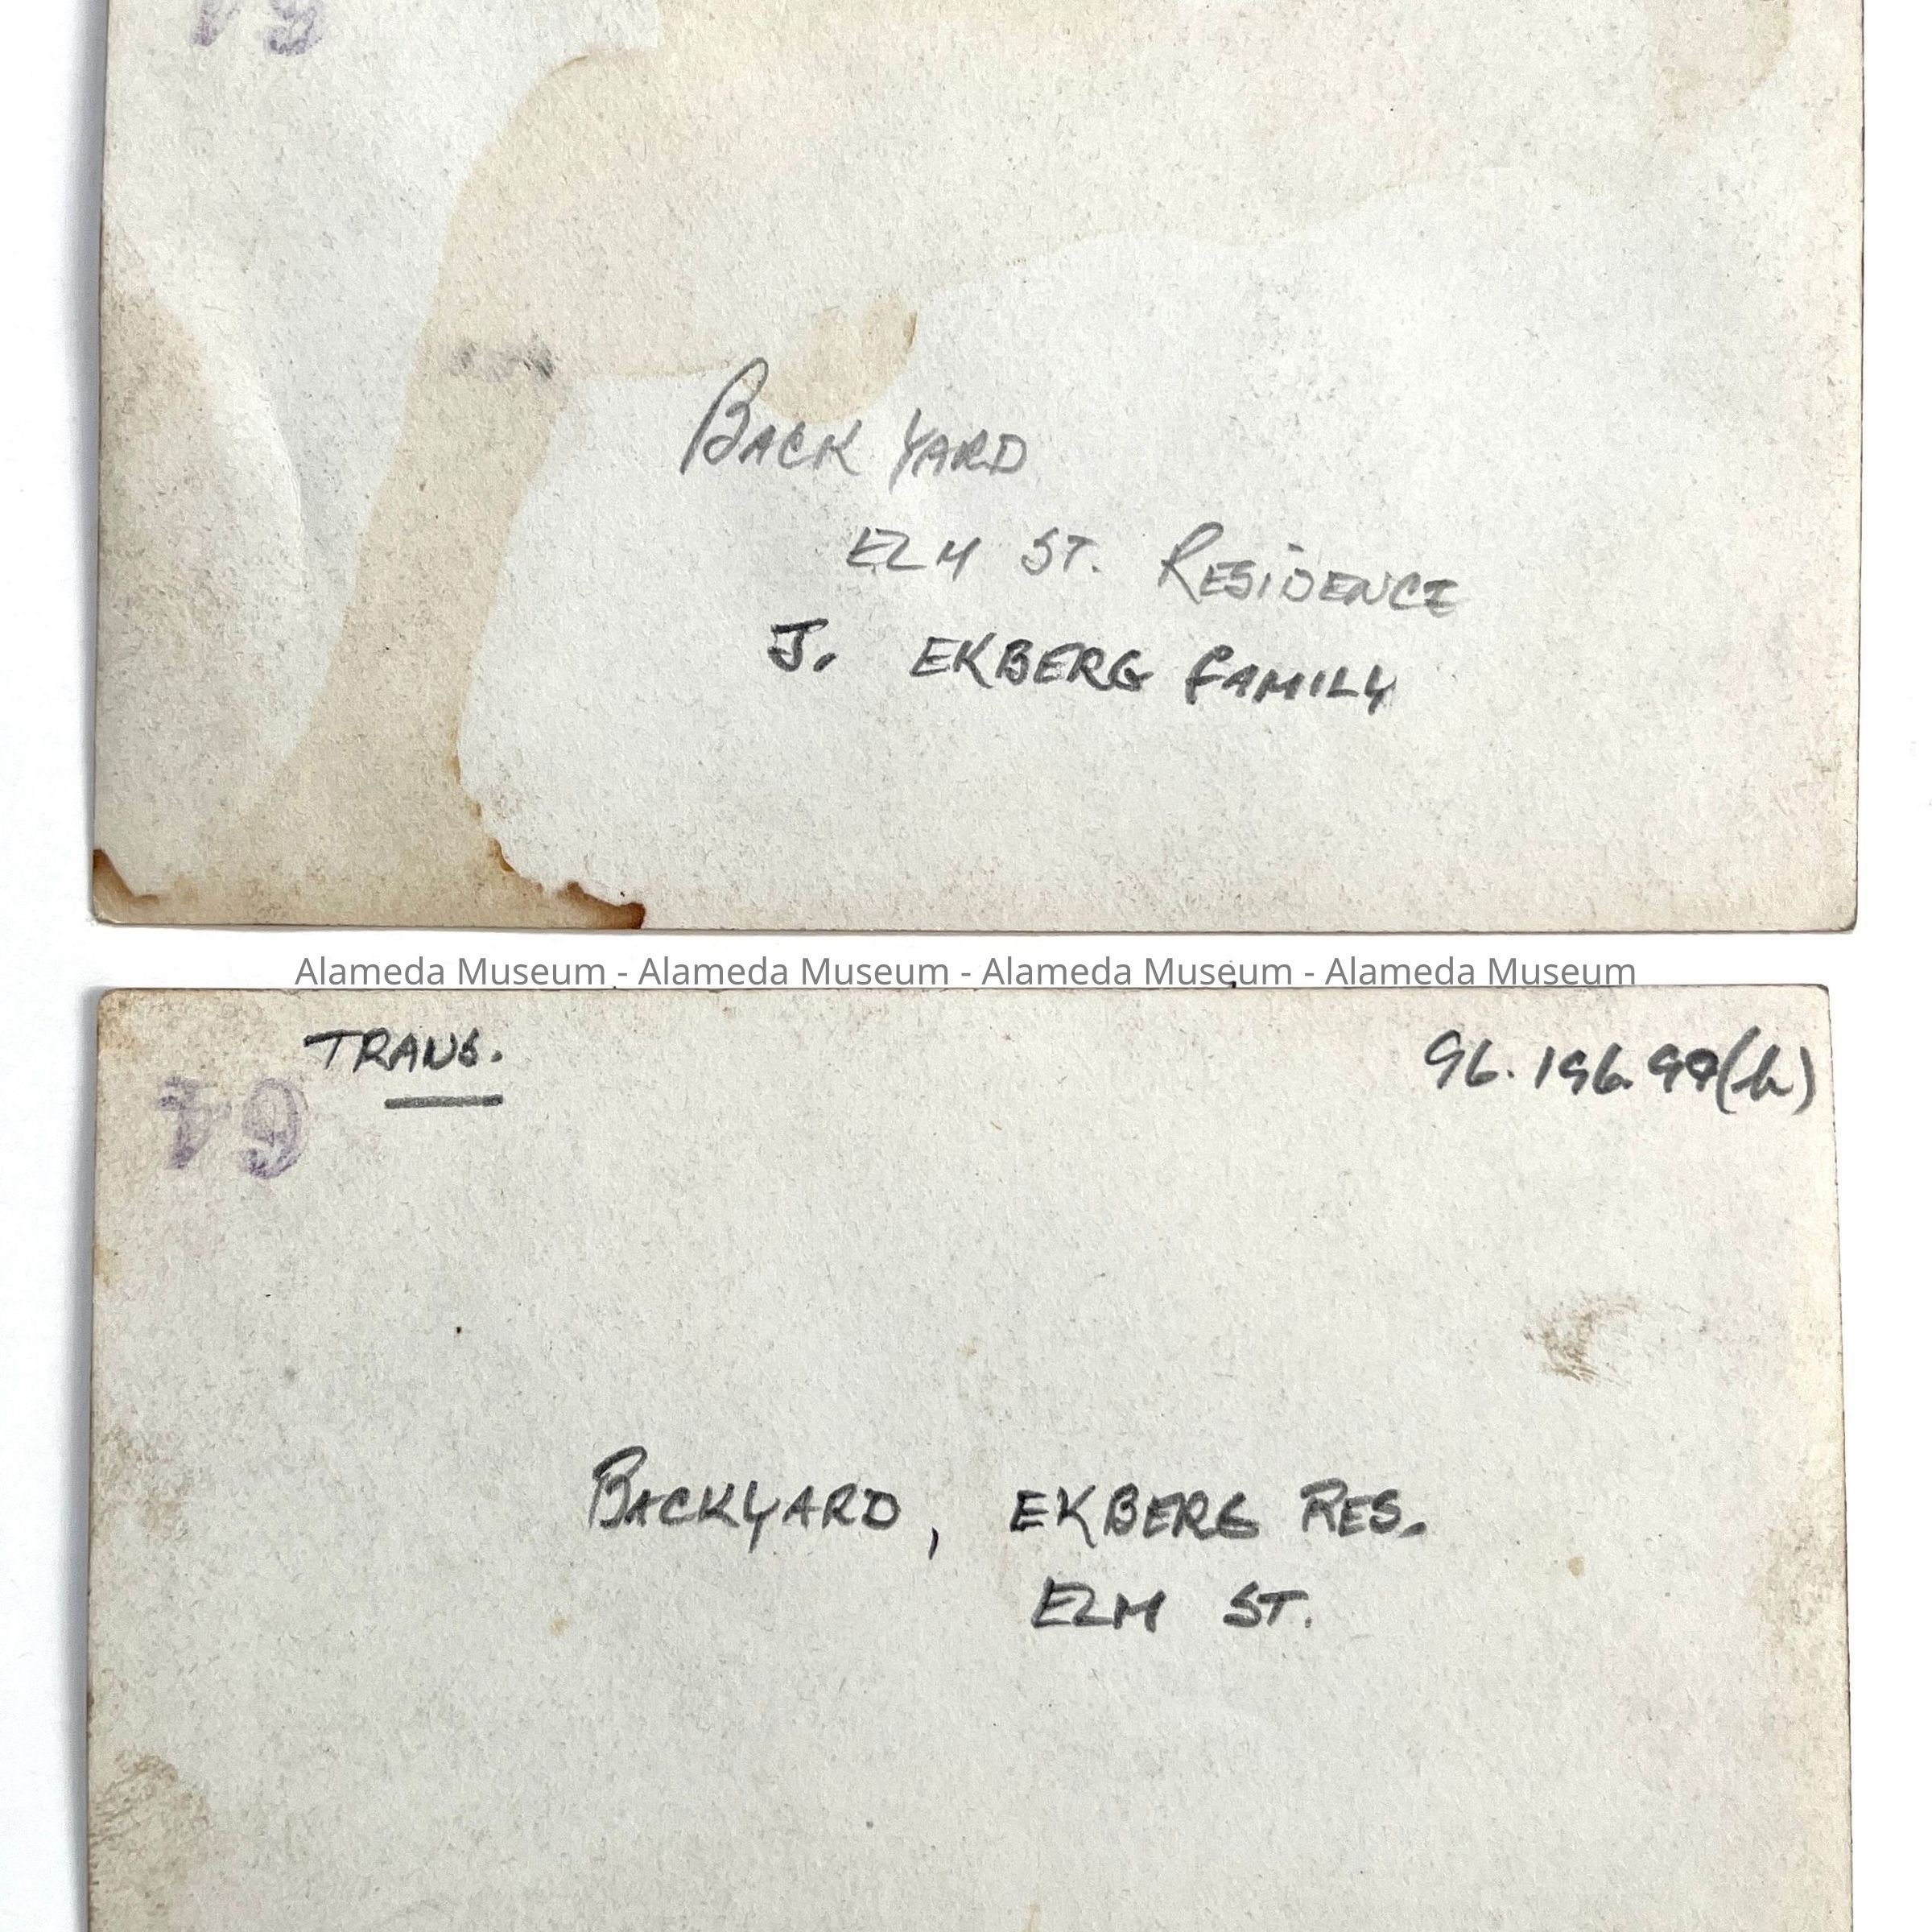 BACK YARD
ELM ST. RESIDENCE
J. EKBERG FAMILY
Alameda Museum - Alameda Museum - Alameda Museum - Alameda Museum
TRANS.
96.196.99(h)
64
BACKYARD, EKBERG RES.
ELM ST.